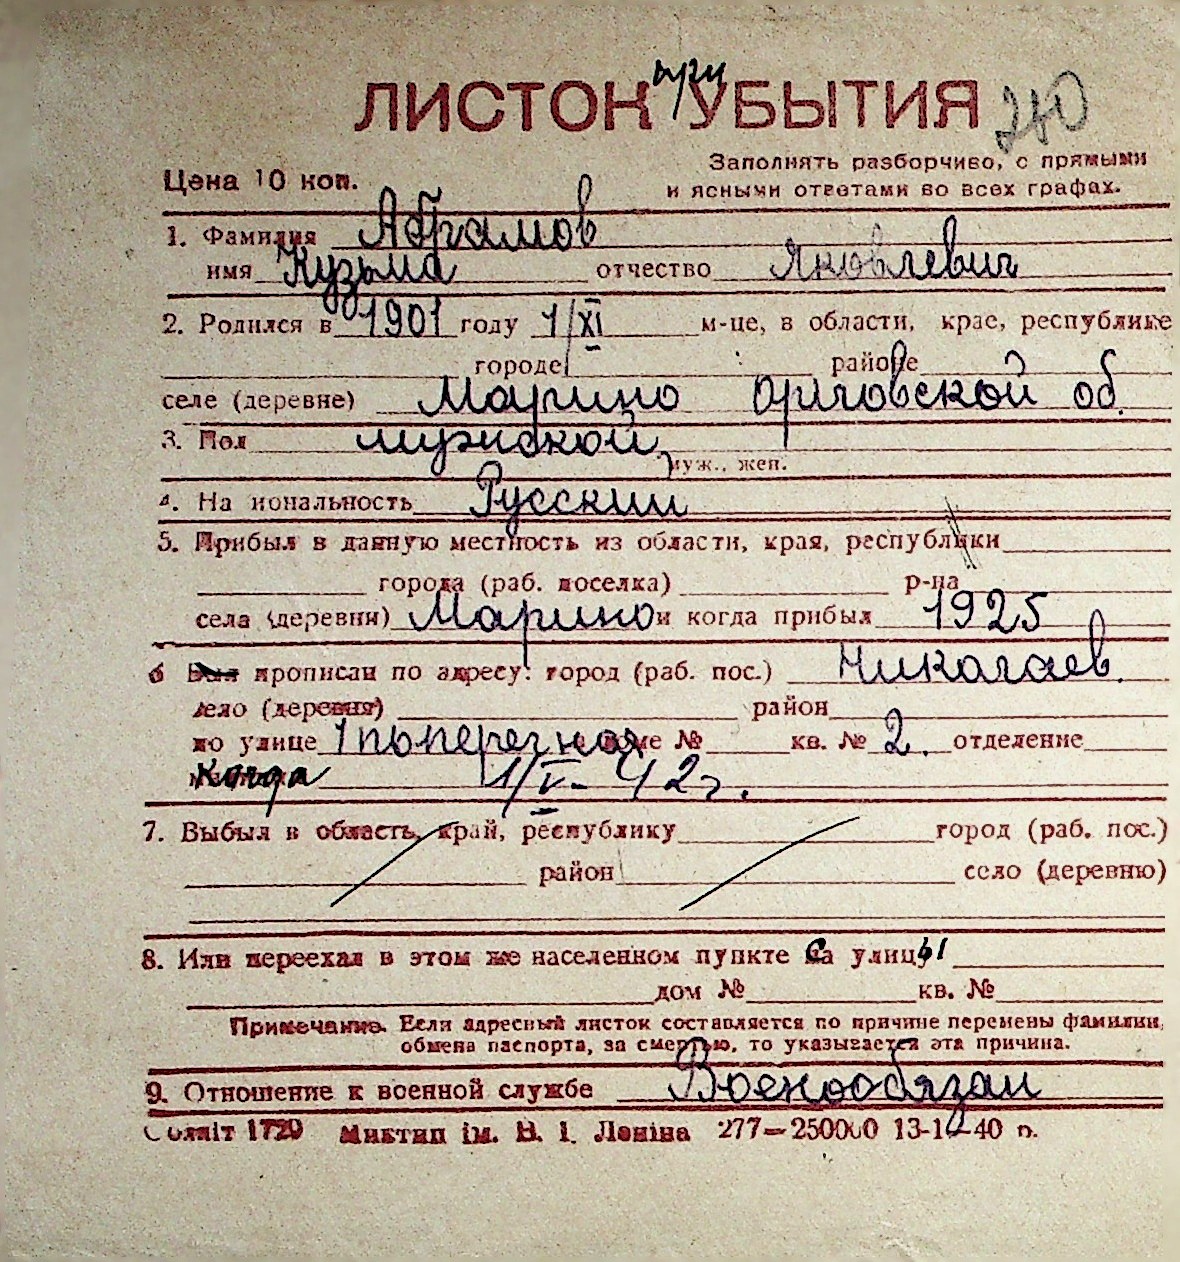 ЛИСТОК при УБЫТИЯ 240
Заполнять разборчиво, с прямыми
Цена 10 коп. и ясными ответами во всех графах.
1. Фамилия Абрамов
имя Кузьма отчество Яковлевич
2. Родился в 1901 году 1/XI м-це, в области, крае, республике
городе районе
селе (деревне) Марино Орловской об.
3. Пол мужской
муж., жен.
4. На иональность Русский
5. Прибыл в данную местность из области, края, республики
города (раб. поселка) р-на
села (деревни) Марино и когда прибыл 1925
6 Был прописан по адресу: город (раб. пос.) Николаев.
село (деревня) район
по улице 1 поперечная доме № кв. № 2. отделение
Когда 1/V-42г.
7. Выбыл в область, край, республику город (раб. пос.)
район село (деревню)
8. Или переехал в этом же населенном пункте са улицы
дом № кв. №
Примечание. Если адресный листок составляется по причине перемены фамилии,
обмена паспорта, за смертью, то указывается эта причина.
9. Отношение к военной службе Военообязан
Обліт 1729 Миктип ім. В. І. Леніна 277—250000 13-1 40 р.